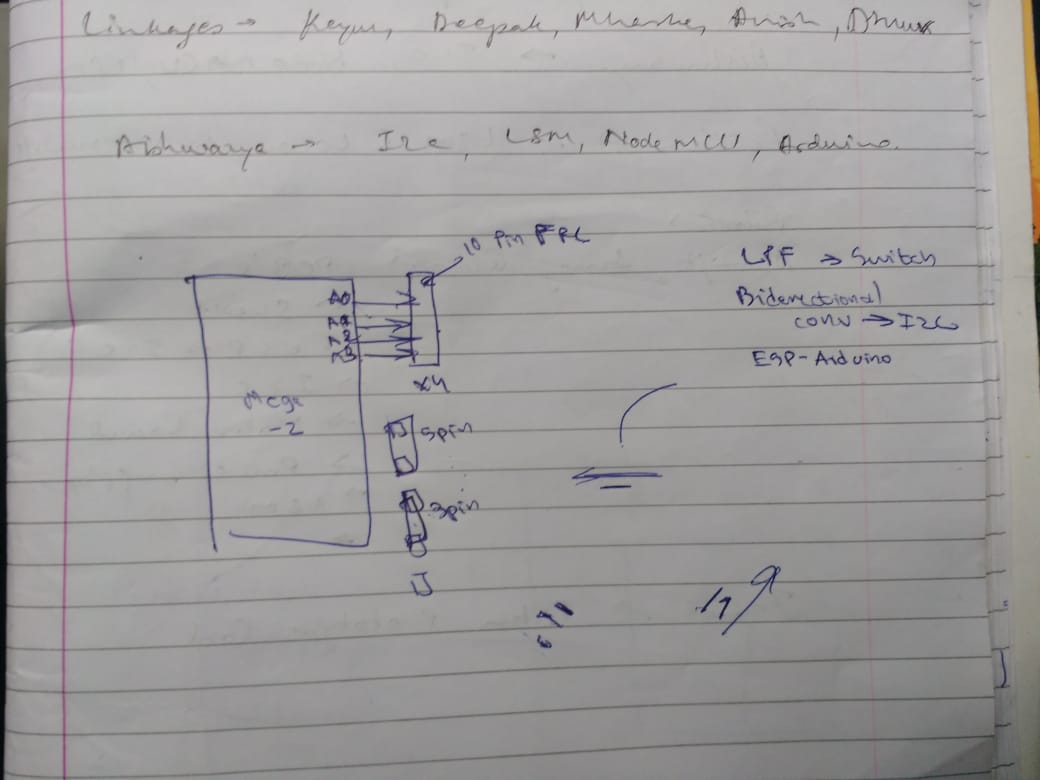 Linkages → Keyur, Deepak, Mhaske, Anish, Dhruv
Aishwarya → I2c, LSM, Node MCU, Arduino.
10 Pin FRC
A0
A1
A2
A3
x4
Mega
-2
5pin
3pin
LPF → Switch
Biderectional
conv → I2C
ESP-Arduino